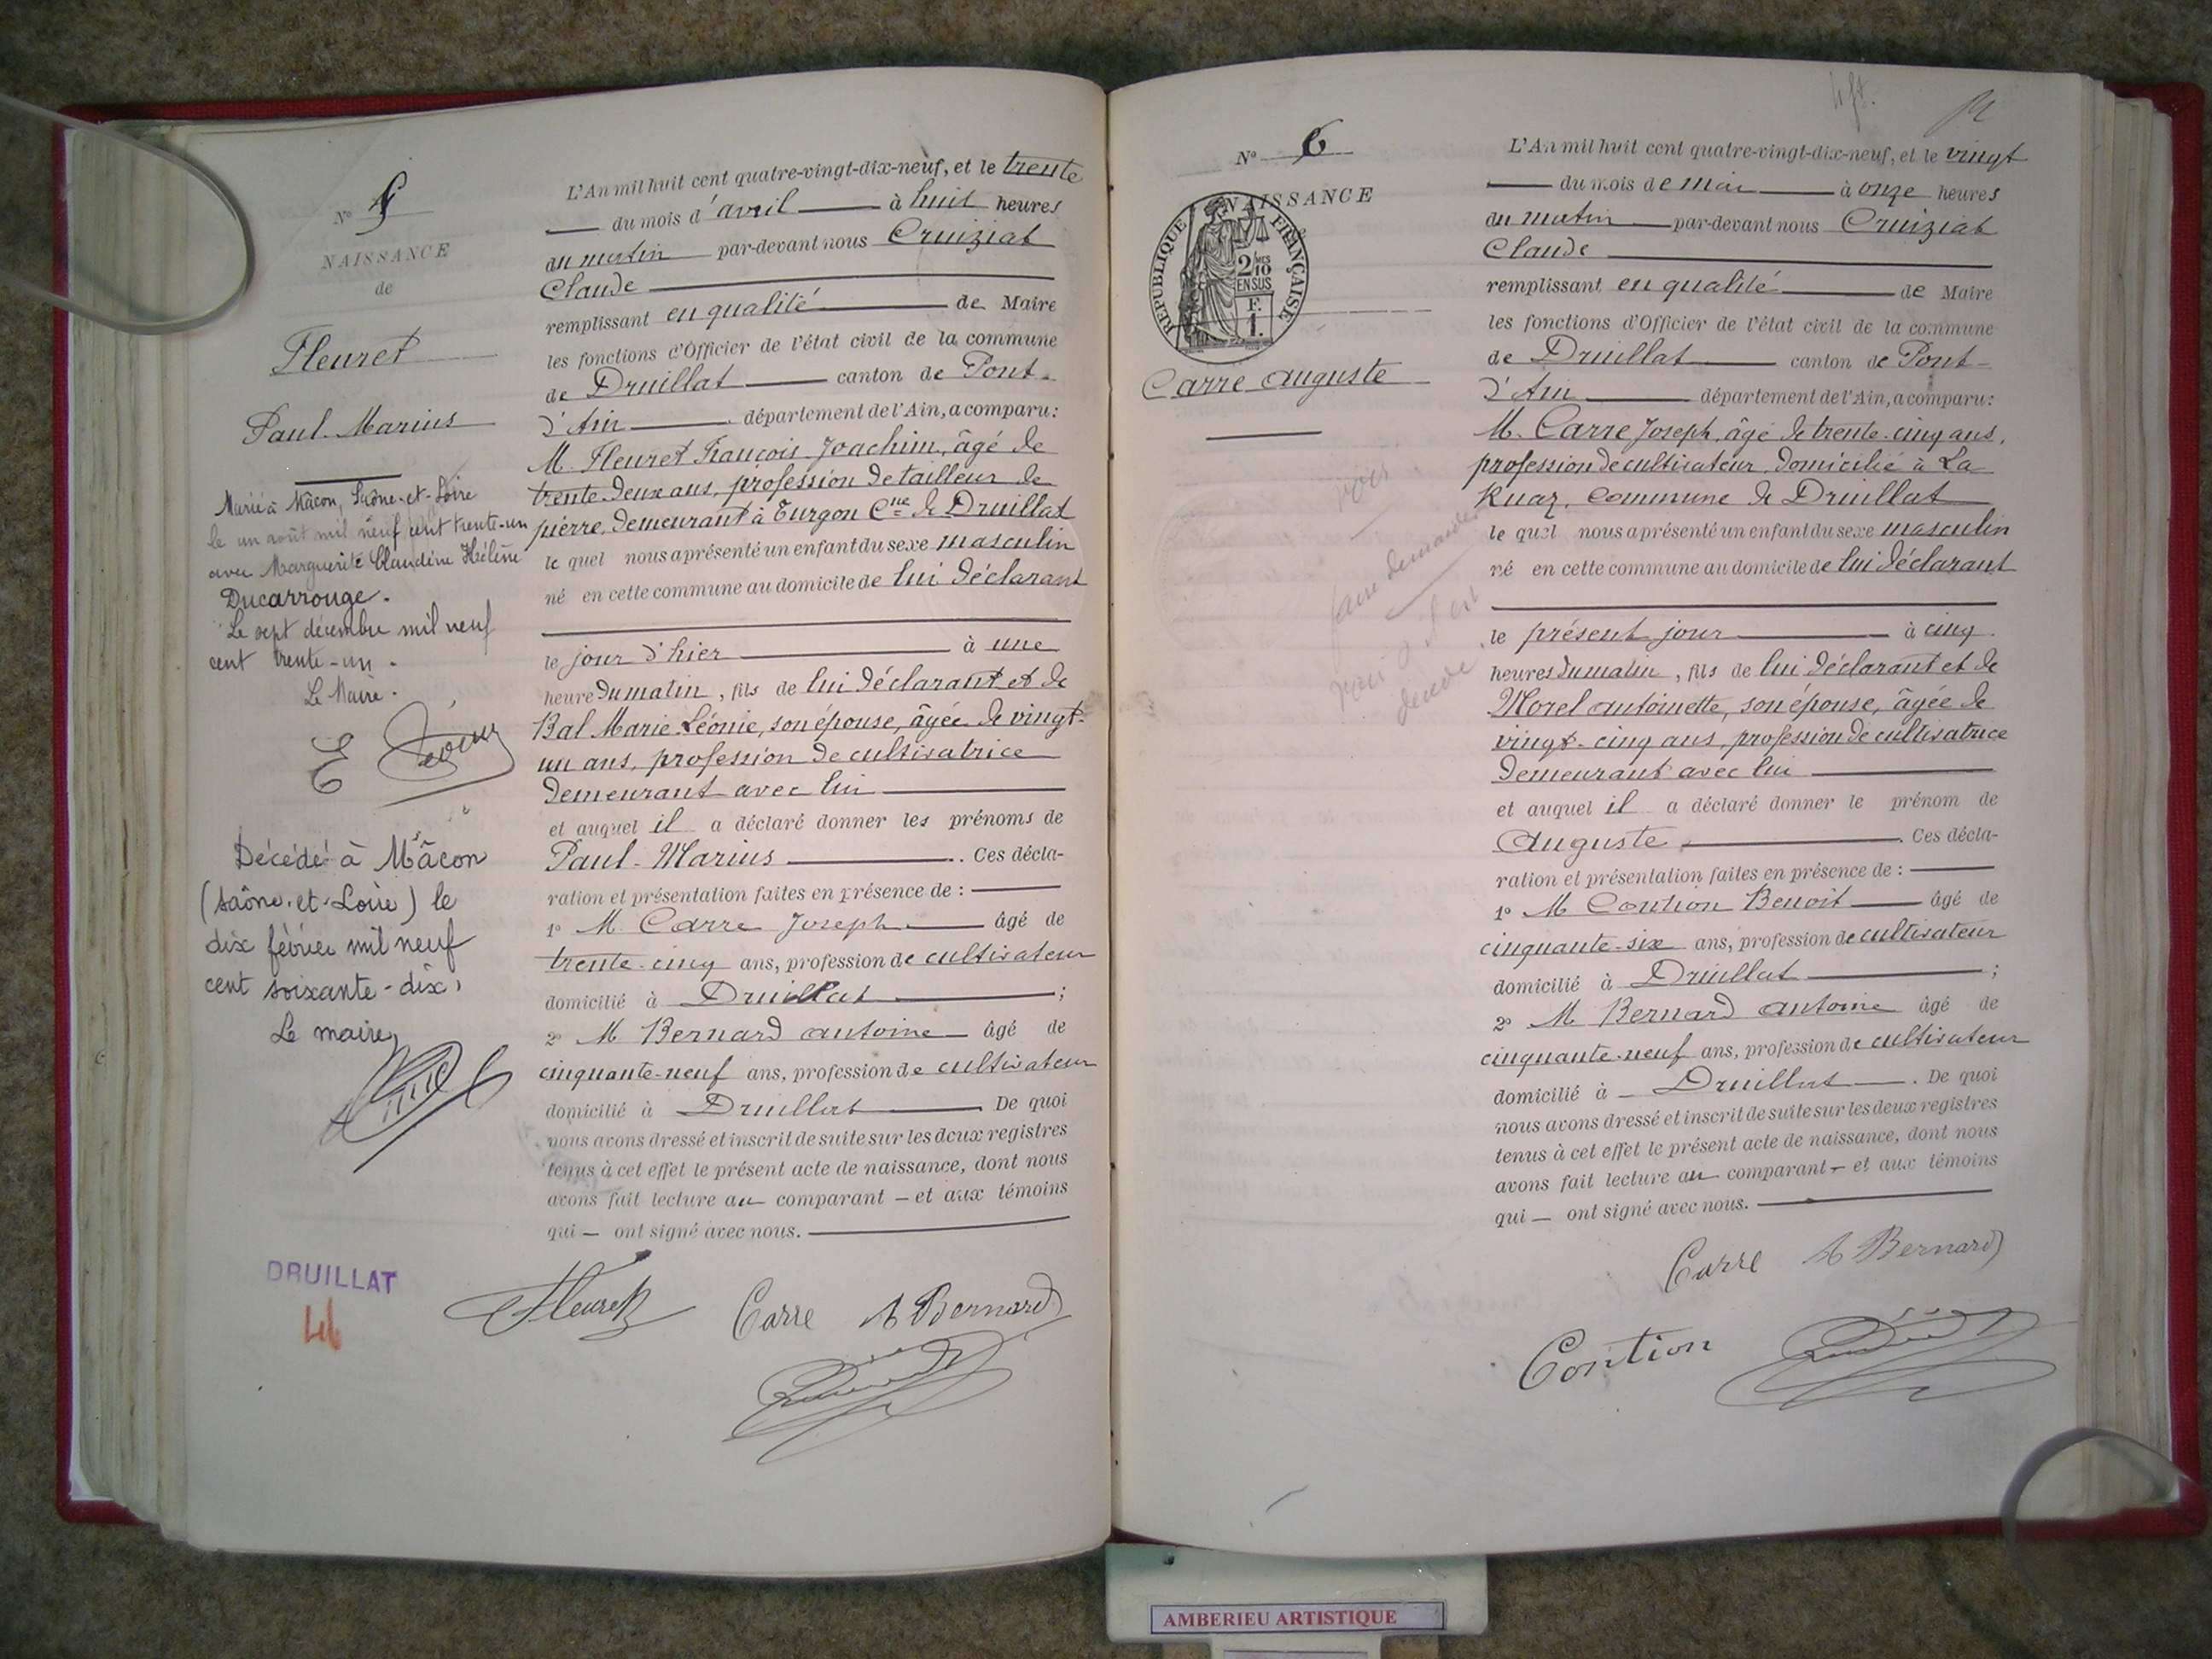 Nº 5
NAISSANCE
de
Fleuret
Paul-Marius
Marié à Mâcon, Saône-et-Loire
le un août mil neuf cent trente-un
avec Marguerite Claudine Hélène
Ducarrouge.
Le sept décembre mil neuf
cent trente-un.
Le Maire.
Décédé à Mâcon
(Saône-et-Loire) le
dix février mil neuf
cent soixante-dix,
Le maire,
DRUILLAT
46
L'An mil huit cent quatre-vingt-dix-neuf, et le trente
du mois d'avril à huit heures
du matin par-devant nous Cruiziat
Claude
remplissant en qualité de Maire
les fonctions d'Officier de l'état civil de la commune
de Druillat canton de Pont-
d'Ain département de l'Ain, a comparu:
M. Fleuret François-Joachim, âgé de
trente-deux ans, profession de tailleur de
pierre, demeurant à Turgon Cne de Druillat
le quel nous a présenté un enfant du sexe masculin
né en cette commune au domicile de lui déclarant
le jour d'hier à une
heure du matin, fils de lui déclarant et de
Bal Marie-Léonie, son épouse, âgée de vingt-
un ans, profession de cultivatrice
demeurant avec lui
et auquel il a déclaré donner les prénoms de
Paul-Marius . Ces décla-
ration et présentation faites en présence de :
1º M. Carre Joseph âgé de
trente-cinq ans, profession de cultivateur
domicilié à Druillat ;
2º M Bernard Antoine âgé de
cinquante-neuf ans, profession de cultivateur
domicilié à Druillat De quoi
nous avons dressé et inscrit de suite sur les deux registres
tenus à cet effet le présent acte de naissance, dont nous
avons fait lecture au comparant — et aux témoins
qui — ont signé avec nous.
Fleuret Carre A Bernard
Nº 6
NAISSANCE
REPUBLIQUE FRANÇAISE
2/10
EN SUS
F.
1.
Carre Auguste
L'An mil huit cent quatre-vingt-dix-neuf, et le vingt
du mois de mai à onze heures
du matin par-devant nous Cruiziat
Claude
remplissant en qualité de Maire
les fonctions d'Officier de l'état civil de la commune
de Druillat canton de Pont-
d'Ain département de l'Ain, a comparu:
M. Carre Joseph, âgé de trente-cinq ans,
profession de cultivateur, domicilié à La
Ruaz, commune de Druillat
le quel nous a présenté un enfant du sexe masculin
né en cette commune au domicile de lui déclarant
le présent jour à cinq
heures du matin, fils de lui déclarant et de
Morel Antoinette, son épouse, âgée de
vingt-cinq ans, profession de cultivatrice
demeurant avec lui
et auquel il a déclaré donner le prénom de
Auguste . Ces décla-
ration et présentation faites en présence de :
1º M Contion Benoit âgé de
cinquante-six ans, profession de cultivateur
domicilié à Druillat ;
2º M Bernard Antoine âgé de
cinquante-neuf ans, profession de cultivateur
domicilié à Druillat . De quoi
nous avons dressé et inscrit de suite sur les deux registres
tenus à cet effet le présent acte de naissance, dont nous
avons fait lecture au comparant — et aux témoins
qui — ont signé avec nous.
Carre A Bernard
Contion
AMBERIEU ARTISTIQUE